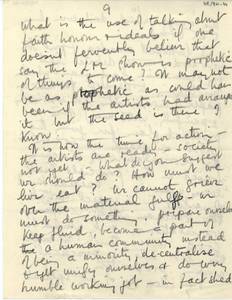 9
What is the use of talking about
faith honour & ideals if one
doesn't fervently believe that
say the show is prophetic
of things to come? It may not
be as prophetic as could have
been if the artists had arranged
it but the seed is there I
know.
It is now the time for action –
the artists are ready – society
not yet. What do you suggest
we should do? How must we
live eat? We cannot grieve
over the material guefs we
must do something, prepare ourselves
keep fluid, become a part of
the a human community instead
of being a minority, de-centralise
& yet unify ourselves & do very
humble working job – in fact shed